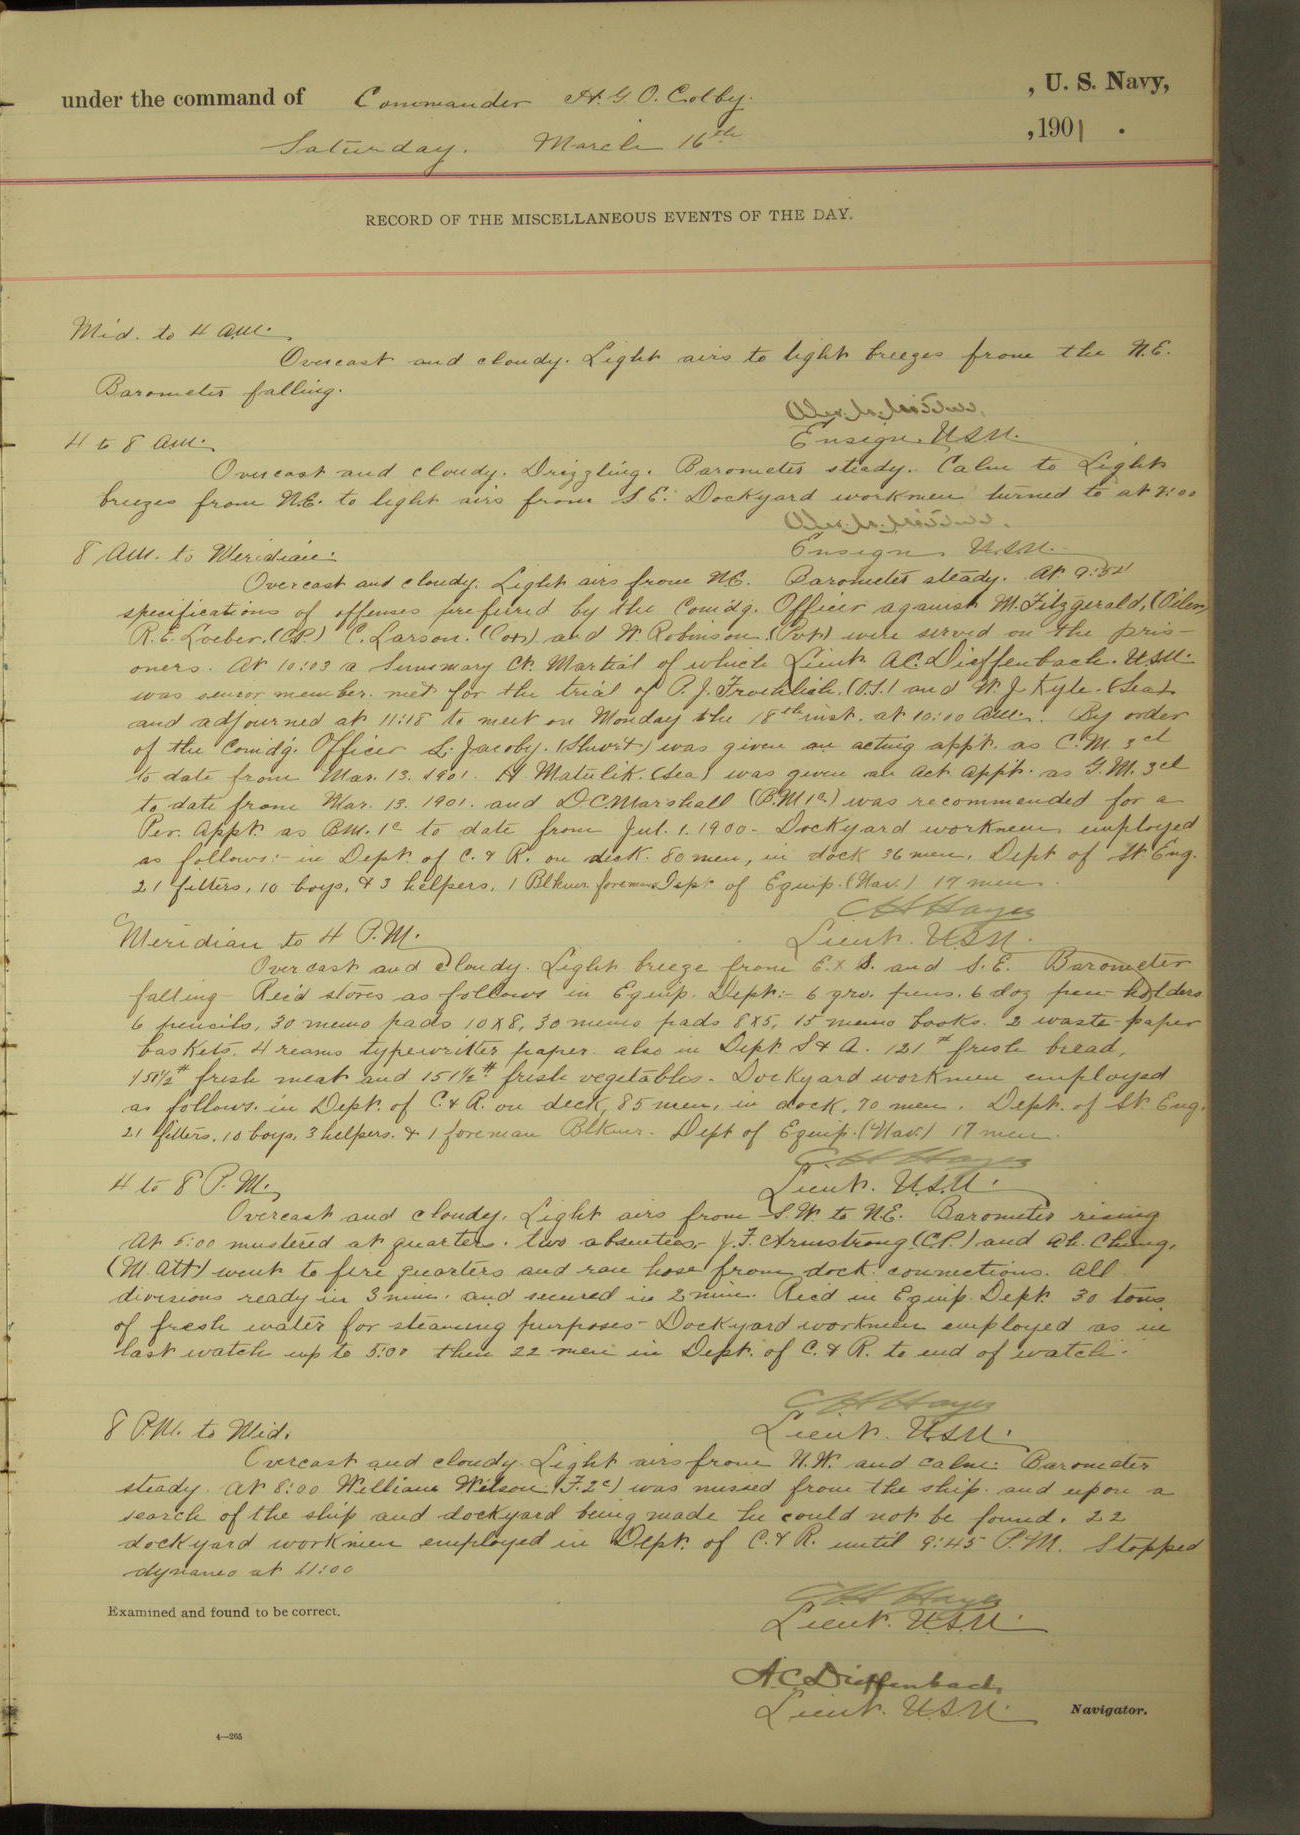 under the command of Commander H. G. O. Colby. , U. S. Navy,
Saturday. March 16th , 1901 .
RECORD OF THE MISCELLANEOUS EVENTS OF THE DAY.
Mid. to 4 A.M.
Overcast and cloudy. Light airs to light breezes from the N.E.
Barometer falling.
Ensign. U.S.N.
4 to 8 A.M.
Overcast and cloudy. Drizzling. Barometer steady. Calm to Light
breezes from N.E. to light airs from S.E. Dockyard workmen turned to at 7:00
Ensign. U.S.N.
8 A.M. to Meridian.
Overcast and cloudy. Light airs from N.E. Barometer steady. At 9:
specifications of offenses preferred by the Com'd'g. Officer against M. Fitzgerald, (Oiler)
R. E. Loeber. (C.P.) C. Larson. (Cox) and W. Robinson. (Pvt) were served on the pris-
oners. At 10:03 a Summary Ct. Martial of which Lieut. A.C. Dieffenbach. U.S.N.
was senior member. met for the trial of P. J. Froehlich. (O.S.) and W. J. Kyle. (Sea)
and adjourned at 11:18 to meet on Monday the 18th inst. at 10:00 A.M. By order
of the Com'd'g. Officer L. Jacoby. (Shwrt) was given an acting app't. as C.M. 3cl
to date from Mar. 13. 1901. H Matulik. (Sea) was given an Act. App't. as G.M. 3cl
to date from Mar. 13. 1901. and D C Marshall (B.M 1c.) was recommended for a
Per. App't as B.M. 1c to date from Jul. 1. 1900 - Dockyard workmen employed
as follows:- in Dept. of C. & R. on deck. 80 men, in dock 36 men. Dept of St. Eng.
21 fitters, 10 boys, & 3 helpers, 1 Blkmr. foreman Dept of Equip. (Nav.) 17 men.
C H Hayes
Lieut. U.S.N.
Meridian to 4 P.M.
Overcast and cloudy. Light breeze from E. x S. and S.E. Barometer
falling - Rec'd stores as follows in Equip. Dept:- 6 gro. pens. 6 doz pen-holders
6 pencils, 30 memo pads 10 x 8, 30 memo pads 8 x 5, 15 memo books. 2 waste-paper
baskets. 4 reams typewritter paper. also in Dept. S & A. 121 # fresh bread,
151 1/2 # fresh meat and 151 1/2 # fresh vegetables. - Dockyard workmen employed
as follows. in Dept. of C. & R. on deck, 85 men, in dock, 70 men. Dept. of St. Eng.
21 fitters. 10 boys, 3 helpers. & 1 foreman Blkmr. Dept of Equip. (Nav.) 17 men.
C H Hayes
Lieut. U.S.N.
4 to 8 P.M.
Overcast and cloudy. Light airs from S.W. to N.E. Barometer rising
At 5:00 mustered at quarters. two absentees - J. F. Armstrong (C.P.) and Ah. Ching,
(M. Att) went to fire quarters and ran hose from dock connections. All
divisions ready in 3 min. and secured in 2 min. Rec'd in Equip. Dept. 30 tons
of fresh water for steaming purposes - Dockyard workmen employed as in
last watch up to 5:00 then 22 men in Dept. of C. & R. to end of watch.
C H Hayes
Lieut. U.S.N.
8 P.M. to Mid.
Overcast and cloudy. Light airs from N.W. and calm. Barometer
steady. At 8:00 William Wilson (F. 2c) was missed from the ship. and upon a
search of the ship and dockyard being made he could not be found. 22
dockyard workmen employed in Dept. of C. & R. until 9:45 P.M. Stopped
dynamo at 11:00
C H Hayes
Examined and found to be correct.
Lieut. U.S.N.
A. C. Dieffenbach
Lieut. U.S.N. Navigator.
4—265